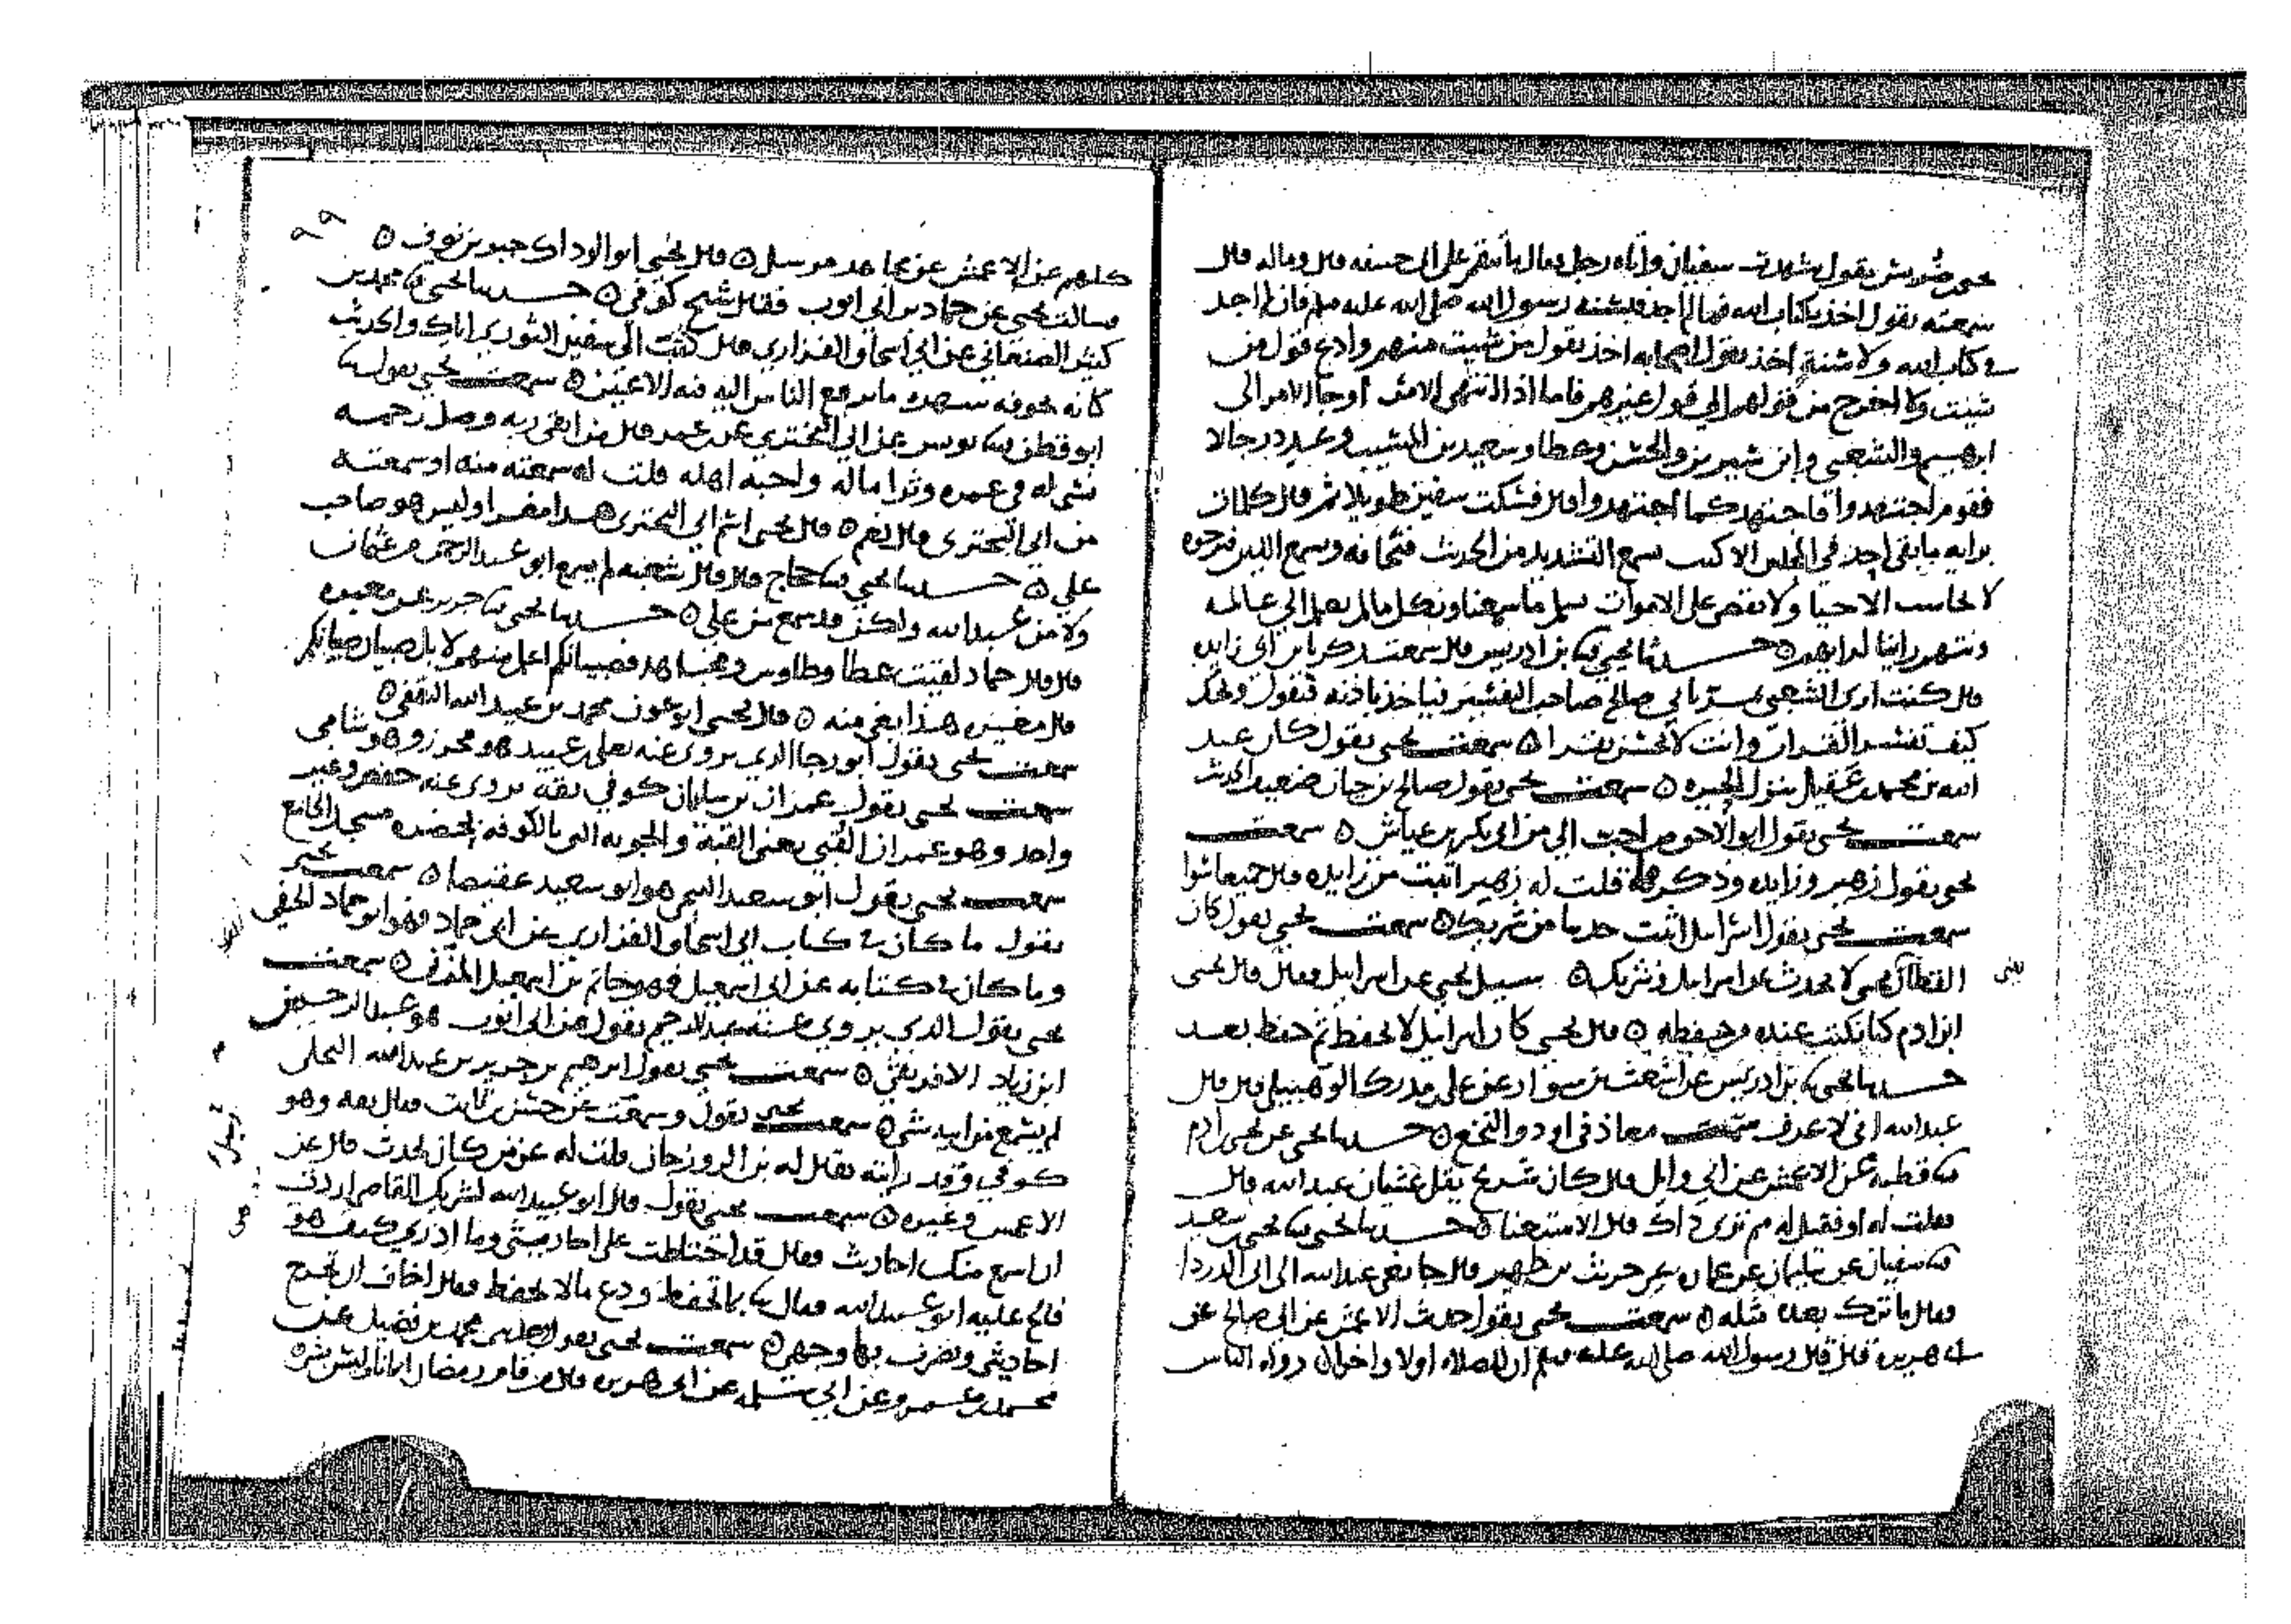 يحيى بن ضريس يقول شهدت سفيان وأتاه رجل فقال ما تنقم على أبي حنيفة قال وماله قال
سمعته يقول آخذ بكتاب الله فما لم أجد فبسنة رسول الله صلى الله عليه وسلم فإن لم أجد
في كتاب الله ولا سنة آخذ بقول أصحابه آخذ بقول من شئت منهم وأدع قول من
شئت ولا أخرج من قولهم إلى قول غيرهم فأما إذا انتهى الأمر أو جاء الأمر إلى
ابرهيم والشعبي وابن سيرين والحسن وعطا وسعيد بن المسيب وعدد رجالا
فقوم اجتهدوا فأجتهد كما اجتهدوا قال فسكت سفين طويلا ثم قال كلمات
برأيه ما بقي أحد في المجلس إلا كتب نسمع التشديد من الحديث فنخافه ونسمع اللين فنرجوه
لا نحاسب الاحيا ولا نقضي على الاموات نسلم ما سمعنا ونكل ما لم نعلم إلى عالمه
ونتهم رأينا لرأيهم ه حدثنا يحيى نا ابن ادريس قال سمعت زكريا بن أبي زايده
قال كنت أرى الشعبي يمر بأبي صالح صاحب التفسير فيأخذ بأذنه فيقول ويحك
كيف تفسر القران وانت لا تحسن تقرا ه سمعت يحيى يقول كان عبد
الله بن محمد بن عقيل ينزل الحيره ه سمعت يحيى يقول صالح بن حيان ضعيف الحديث
سمعت يحيى يقول ابو الاحوص احب إلي من ابي بكر بن عياش ه سمعت
يحيى يقول زهير وزايده وذكرهما قلت له زهير اثبت من زايده قال جميعا سوا
سمعت يحيى يقول اسرايل اثبت حديثا من شريك ه سمعت يحيى يقول كان
القطان يحيى لا يحدث عن اسرايل وشريك ه سيل يحيى عن اسرايل فقال قال يحيى
يعني
ابن ادم كنا نكتب عنده من حفظه ه قال يحيى كان اسرايل لا يحفظ ثم حفظ بعد
حدثنا يحيى نا ابن ادريس عن اشعث بن سوار عن علي بن مدرك قال قال
عبد الله اني لا عرف سمت معاذ في اود والنخع ه حدثنا يحيى عن يحيى بن ادم
نا قطبه عن الاعمش عن ابي وايل قال كان شريح يقل غشيان عبد الله قال
فقلت له أو فقيل له مم ترى ذاك قال الاستغنا ه حدثنا يحيى نا يحيى بن سعيد
نا سفيان عن سليمان عن عماره عن حريث بن ظهير قال جا نعي عبد الله الى ابي الدردا
فقال ما ترك بعده مثله ه سمعت يحيى يقول حديث الاعمش عن ابي صالح عن
ابي هريره قال قال رسول الله صلى الله عليه وسلم ان للصلاه اولا واخرا رواه الناس
٩٩
كلهم عن الاعمش عن مجاهد مرسل ه قال يحيى ابو الوداك جبر بن نوف ه
وسالت يحيى عن حماد بن ابي ايوب فقال شيخ كوفي ه حدثنا يحيى نا محمد بن
كثير الصنعاني عن ابي اسحاق الفزاري قال كتبت الى سفين الثوري اياك والحديث
كانه خوفه بعدو ما يرفع الناس اليه فيه الاعين ه سمعت يحيى يقول نا
ابو قطن نا يونس عن ابي البختري عن عمر قال من اتقى ربه ووصل رحمه
نسي له في عمره وثرا ماله واحبه اهله قلت له سمعته منه او سمعته
من ابي البختري قال نعم ه قال يحيى اسم ابي البختري هذا مغرا وليس هو صاحب
علي ه حدثنا يحيى نا حجاج قال قال شعبه لم يسمع ابو عبد الرحمن من عثمان
ولا من عبد الله ولكن قد سمع من علي ه حدثنا يحيى نا جرير عن مغيره
قال قال حماد لقيت عطا وطاوس ومجاهد فصبيانكم اعلم منهم لا بل صبيان صبيانكم
قال مغيره هذا بغي منه ه قال يحيى ابو عون محمد بن عبيد الله الثقفي ه
سمعت يحيى يقول ابو رجا الذي يروي عنه يعلى بن عبيد هو محرز وهو شامي
سمعت يحيى يقول عمران بن سليمان كوفي ثقه يروي عنه حفص وغير
واحد وهو عمران القبي يعني القبة والجوبه التي بالكوفه بحضره مسجد الجامع
سمعت يحيى يقول ابو سعيد التيمي هو ابو سعيد عقيصا ه سمعت يحيى
يقول ما كان في كتاب ابي اسحاق الفزاري عن ابي حماد فهو ابو حماد الحنفي
وما كان في كتابه عن ابي اسمعيل فهو حاتم بن اسمعيل المدني ه سمعت
يحيى يقول الذي يروي عنه عبد الرحيم يقول عن ابي ايوب هو عبد الرحمن
ابن زياد الافريقي ه سمعت يحيى يقول ابرهيم بن جرير بن عبد الله البجلي
لم يسمع من ابيه شي ه سمعت يحيى يقول وسمعت عن حسن بن ثابت فقال ثقه وهو
كوفي وقد رايته يقال له ابن الروزجار قلت له عن من كان يحدث قال عن
الاعمش وغيره ه سمعت يحيى يقول قال ابو عبيد الله لشريك القاضي اردت
ان اسمع منك احاديث فقال قد اختلطت علي احاديثي وما ادري كيف هو
فالح عليه ابو عبيد الله فقال نا بما تحفظ ودع ما لا تحفظ فقال اخاف ان تجرح
احاديثي ويضرب بها وجهي ه سمعت يحيى يقول محمد بن فضيل عن
محمد بن عمرو عن ابي سلمه عن ابي هريره قال من قام رمضان ايمانا